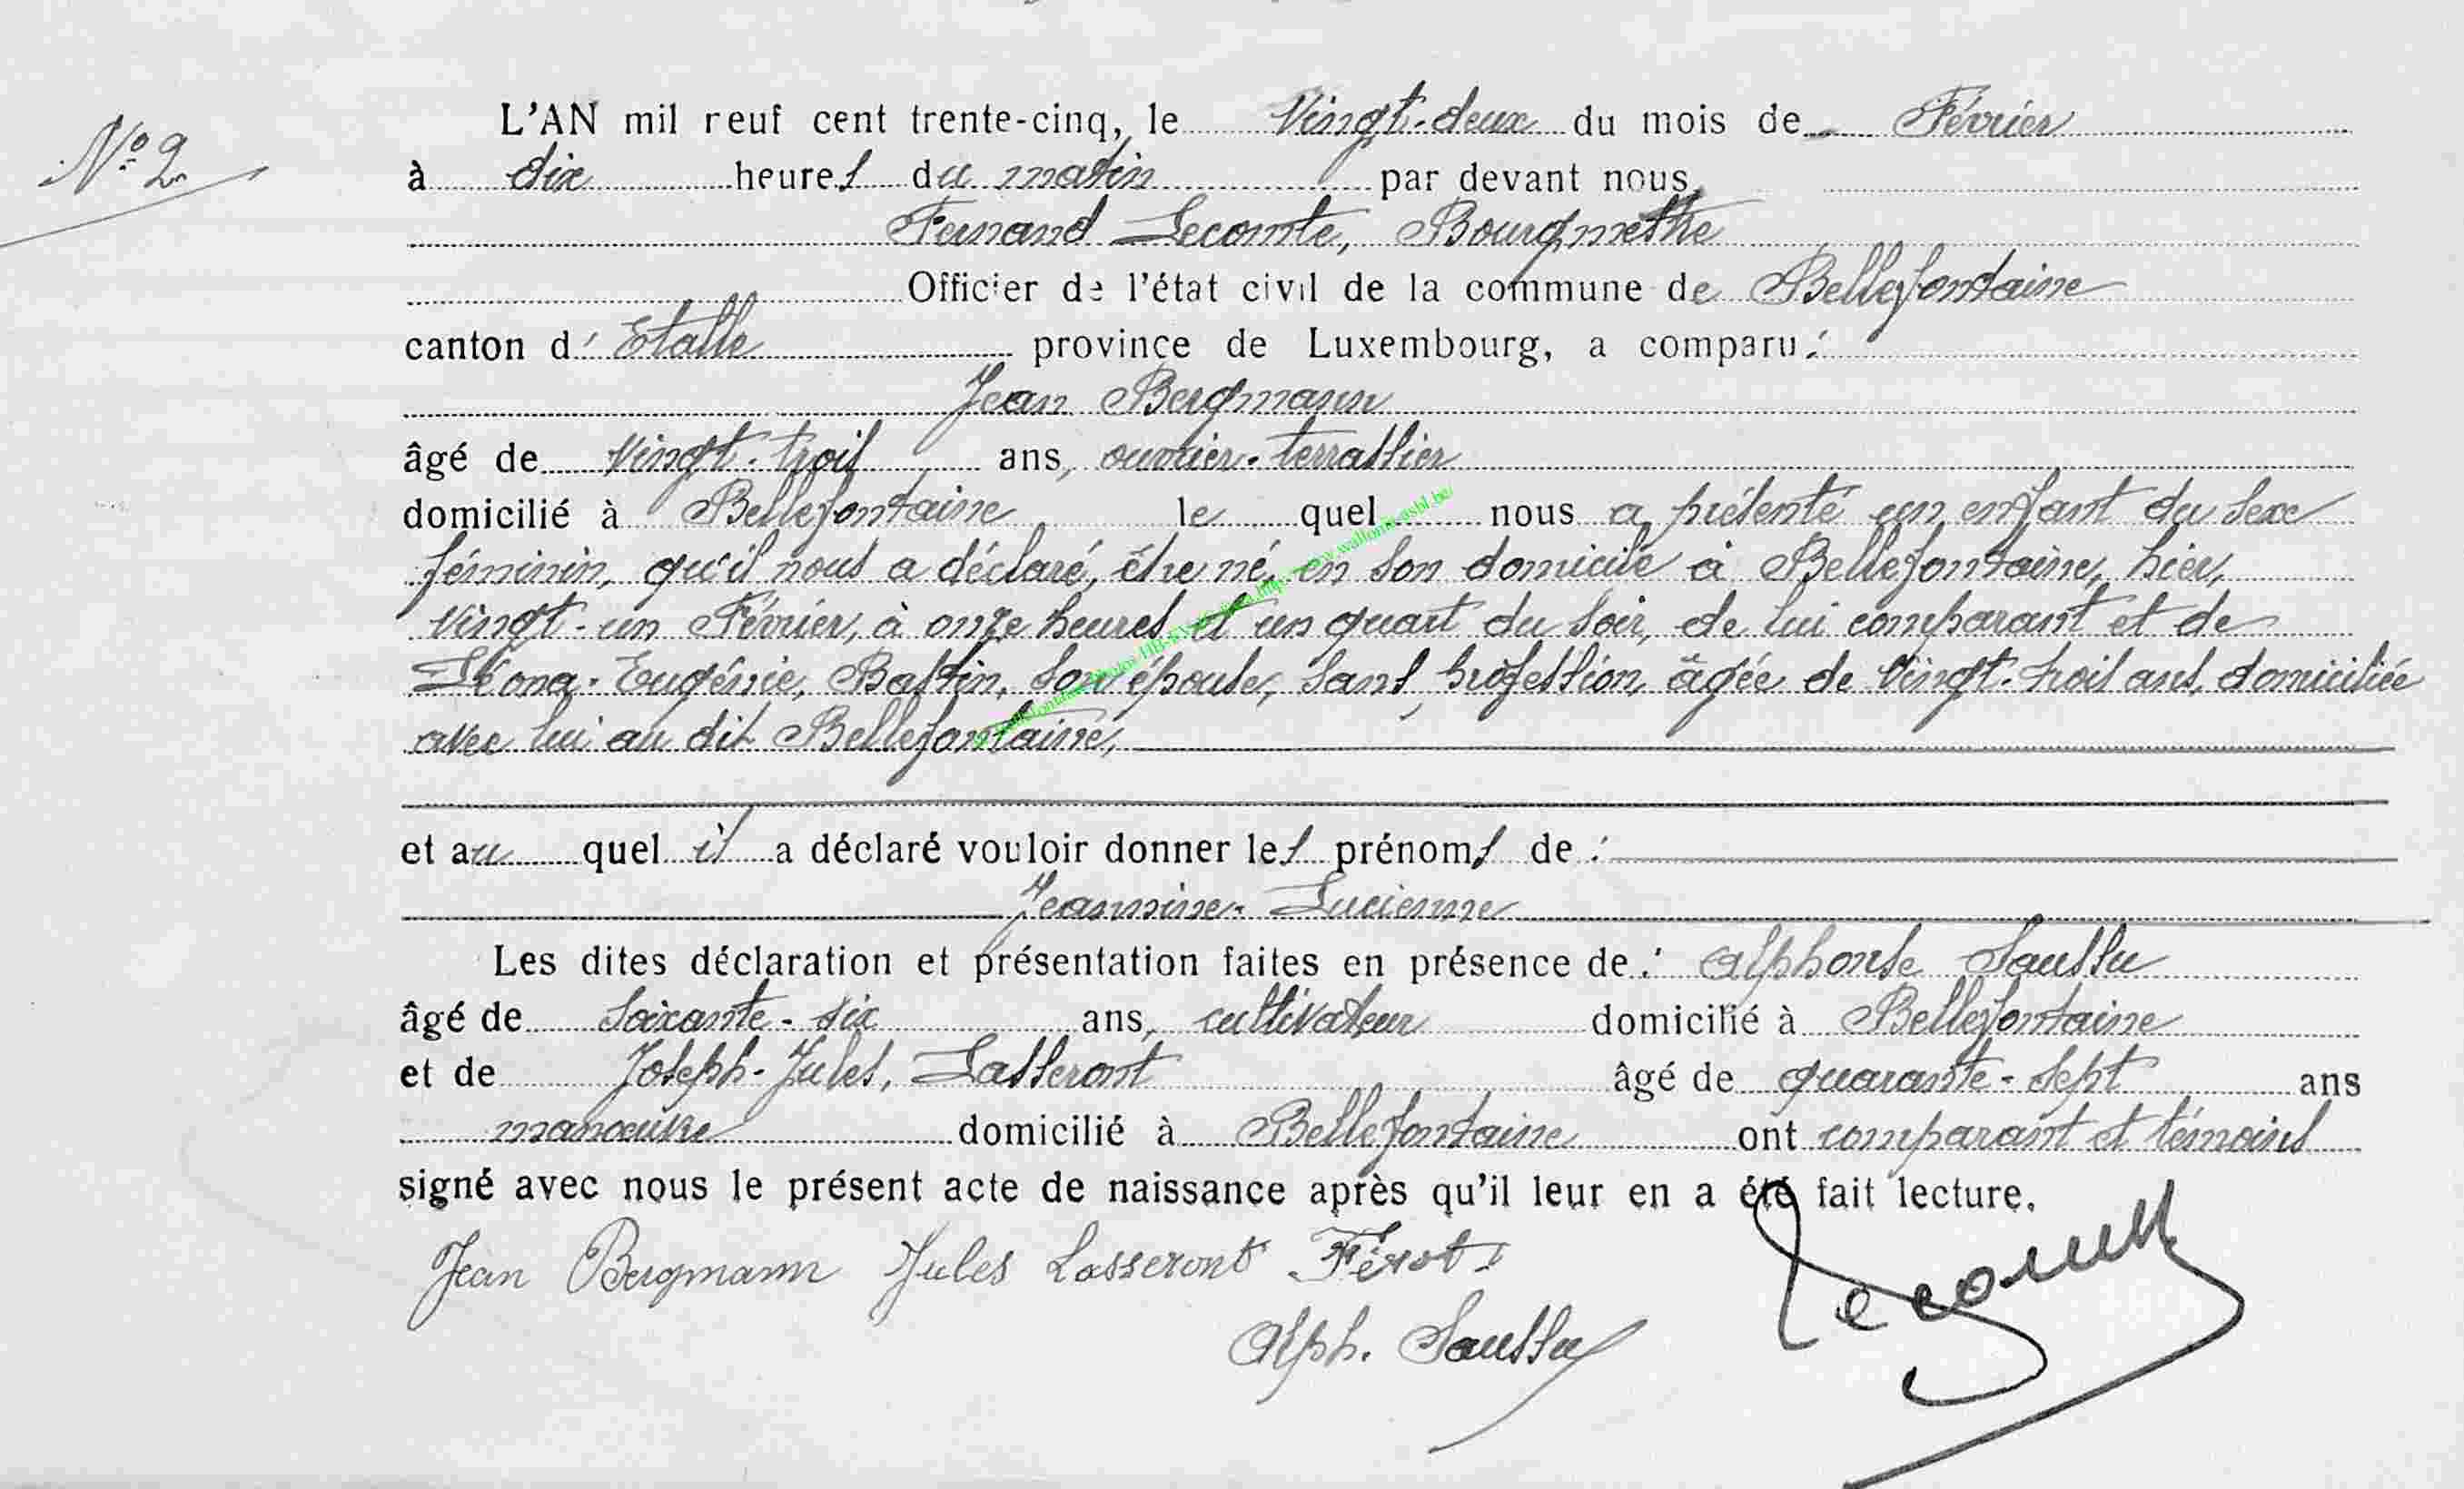 L'AN mil neuf cent trente-cinq, le Vingt-deux du mois de Février
N° 2
à dix heures du matin par devant nous,
Fernand Lecomte, Bourgmestre
Officier de l'état civil de la commune de Bellefontaine
canton d' Etalle province de Luxembourg, a comparu :
Jean Bergmann
âgé de Vingt-trois ans, ouvrier-terrassier
domicilié à Bellefontaine le quel nous a présenté un enfant du sexe
féminin, qu'il nous a déclaré, être né, en son domicile à Bellefontaine, hier,
Vingt-un Février, à onze heures et un quart du soir, de lui comparant et de
Eugénie, Bastin, son épouse, sans profession, âgée de Vingt-trois ans, domiciliée
avec lui au dit Bellefontaine,
et au quel il a déclaré vouloir donner les prénoms de :
Jeannine-Lucienne
Les dites déclaration et présentation faites en présence de : Alphonse Saussu
âgé de Soixante-six ans, cultivateur domicilié à Bellefontaine
et de Joseph-Jules, Lasseront âgé de quarante-sept ans
manœuvre domicilié à Bellefontaine ont comparant et témoins
signé avec nous le présent acte de naissance après qu'il leur en a été fait lecture.
Jean Bergmann Jules Lasseront Férot
Alph. Saussu
Lecomte